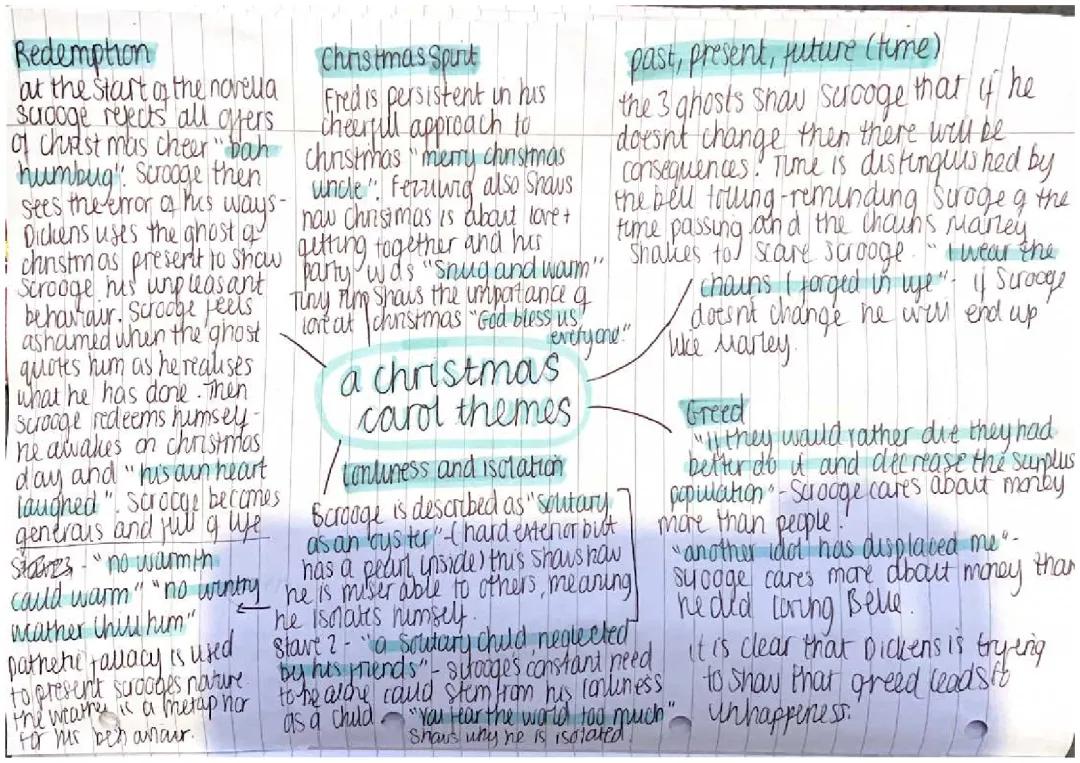 Redemption
at the start of the novella
scrooge rejects all offers
of Christmas cheer "bah
humbug". Scrooge then
sees the error of his ways-
Dickens uses the ghost of
christmas present to show
scrooge his unpleasant
behaviour. Scrooge feels
ashamed when the ghost
quotes him as he realises
what he has done. Then
scrooge redeems himself-
he awakes on christmas
day and "his own heart
laughed". Scrooge becomes
generous and full of life
Christmas Spirit
Fred is persistent in his
cheerful approach to
christmas "merry christmas
uncle". Fezziwig also shows
how Christmas is about love +
getting together and his
party was "snug and warm"
Tiny Tim shows the importance of
love at christmas "God bless us
everyone."
past, present, future (time)
the 3 ghosts show scrooge that if he
doesnt change then there will be
consequences. Time is distinguished by
the bell tolling-reminding scrooge of the
time passing and the chains Marley
shakes to scare scrooge. "I wear the
chains I forged in life" - if Scrooge
doesnt change he will end up
like Marley.
a christmas
carol themes
Lonliness and isolation
Scrooge is described as "solitary
as an oyster"-(hard exterior but
has a pearl inside) this shows how
he is miserable to others, meaning
he isolates himself.
Stave 2 - "a solitary child, neglected
by his friends" - scrooges constant need
to be alone could stem from his lonliness
as a child. "You fear the world too much"
shows why he is isolated.
"no warmth
could warm" "no wintry
weather chill him"
pathetic fallacy is used
to present scrooges nature
the weather is a metaphor
for his behaviour.
Greed
"if they would rather die they had
better do it and decrease the surplus
population" - Scrooge cares about money
more than people.
"another idol has displaced me"-
scrooge cares more about money than
he did loving Belle.
it is clear that Dickens is trying
to show that greed leads to
unhappiness.